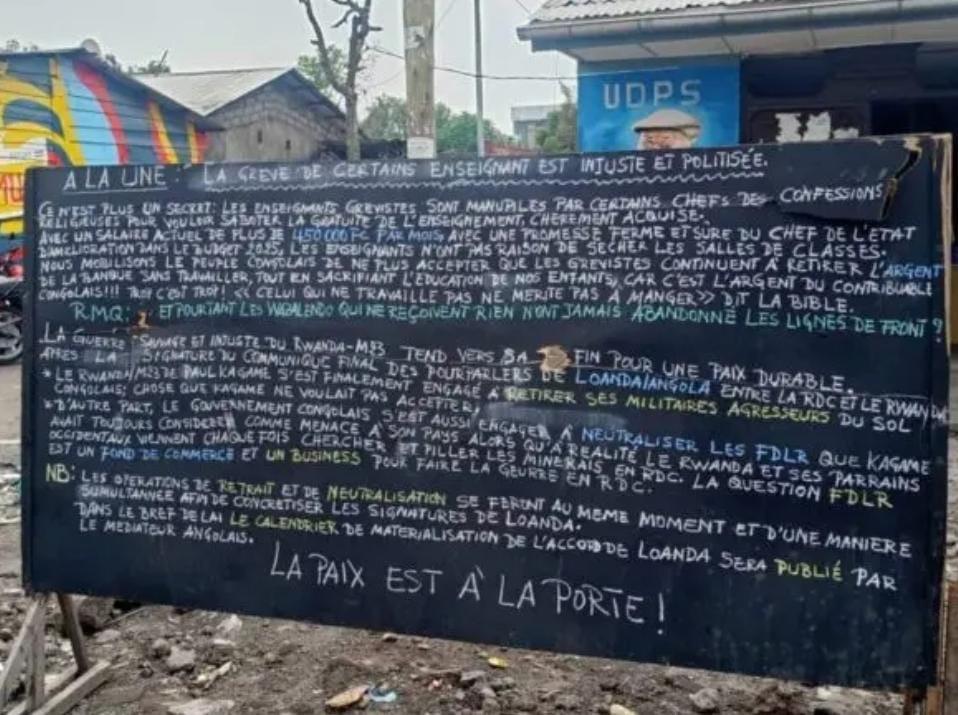 UDPS
A LA UNE : LA GREVE DE CERTAINS ENSEIGNANT EST INJUSTE ET POLITISÉE.
CE N'EST PLUS UN SECRET: LES ENSEIGNANTS GREVISTES SONT MANUPILES PAR CERTAINS CHEFS DES CONFESSIONS
RELIGIEUSES POUR VOULOIR SABOTER LA GRATUITE DE L'ENSEIGNEMENT, CHEREMENT ACQUISE.
AVEC UN SALAIRE ACTUEL DE PLUS DE 450 000 FC PAR MOIS, AVEC UNE PROMESSE FERME ET SÛRE DU CHEF DE L'ETAT
D'AMELIORATION DANS LE BUDGET 2025, LES ENSEIGNANTS N'ONT PAS RAISON DE SECHER LES SALLES DE CLASSES.
NOUS MOBILISONS LE PEUPLE CONGOLAIS DE NE PLUS ACCEPTER QUE LES GREVISTES CONTINUENT À RETIRER L'ARGENT
DE LA BANQUE SANS TRAVAILLER, TOUT EN SACRIFIANT L'EDUCATION DE NOS ENFANTS, CAR C'EST L'ARGENT DU CONTRIBUABLE
CONGOLAIS!!! TROP C'EST TROP! << CELUI QUI NE TRAVAILLE PAS NE MERITE PAS À MANGER>> DIT LA BIBLE.
RMQ: ET POURTANT LES WAZALENDO QUI NE REÇOIVENT RIEN N'ONT JAMAIS ABANDONNÉ LES LIGNES DE FRONT ?
LA GUERRE SAUVAGE ET INJUSTE DU RWANDA-M23 TEND VERS SA FIN POUR UNE PAIX DURABLE.
APRES LA SIGNATURE DU COMMUNIQUE FINAL DES POURPARLERS DE LOANDA/ANGOLA ENTRE LA RDC ET LE RWANDA
* LE RWANDA/M23 DE PAUL KAGAME S'EST FINALEMENT ENGAGÉ À RETIRER SES MILITAIRES AGRESSEURS DU SOL
CONGOLAIS; CHOSE QUE KAGAME NE VOULAIT PAS ACCEPTER.
* D'AUTRE PART, LE GOUVERNEMENT CONGOLAIS S'EST AUSSI ENGAGÉ À NEUTRALISER LES FDLR QUE KAGAME
AVAIT TOUJOURS CONSIDERER COMME MENACE À SON PAYS ALORS QU'À REALITÉ LE RWANDA ET SES PARRAINS
OCCIDENTAUX VIENNENT CHAQUE FOIS CHERCHER ET PILLER LES MINERAIS EN RDC. LA QUESTION FDLR
EST UN FOND DE COMMERCE ET UN BUSINESS POUR FAIRE LA GEURRE EN RDC.
NB: LES OPERATIONS DE RETRAIT ET DE NEUTRALISATION SE FERONT AU MEME MOMENT ET D'UNE MANIERE
SUMULTANNÉE AFIN DE CONCRETISER LES SIGNATURES DE LOANDA.
DANS LE BREF DELAI LE CALENDRIER DE MATERIALISATION DE L'ACCORD DE LOANDA SERA PUBLIÉ PAR
LE MEDIATEUR ANGOLAIS.
LA PAIX EST À LA PORTE !